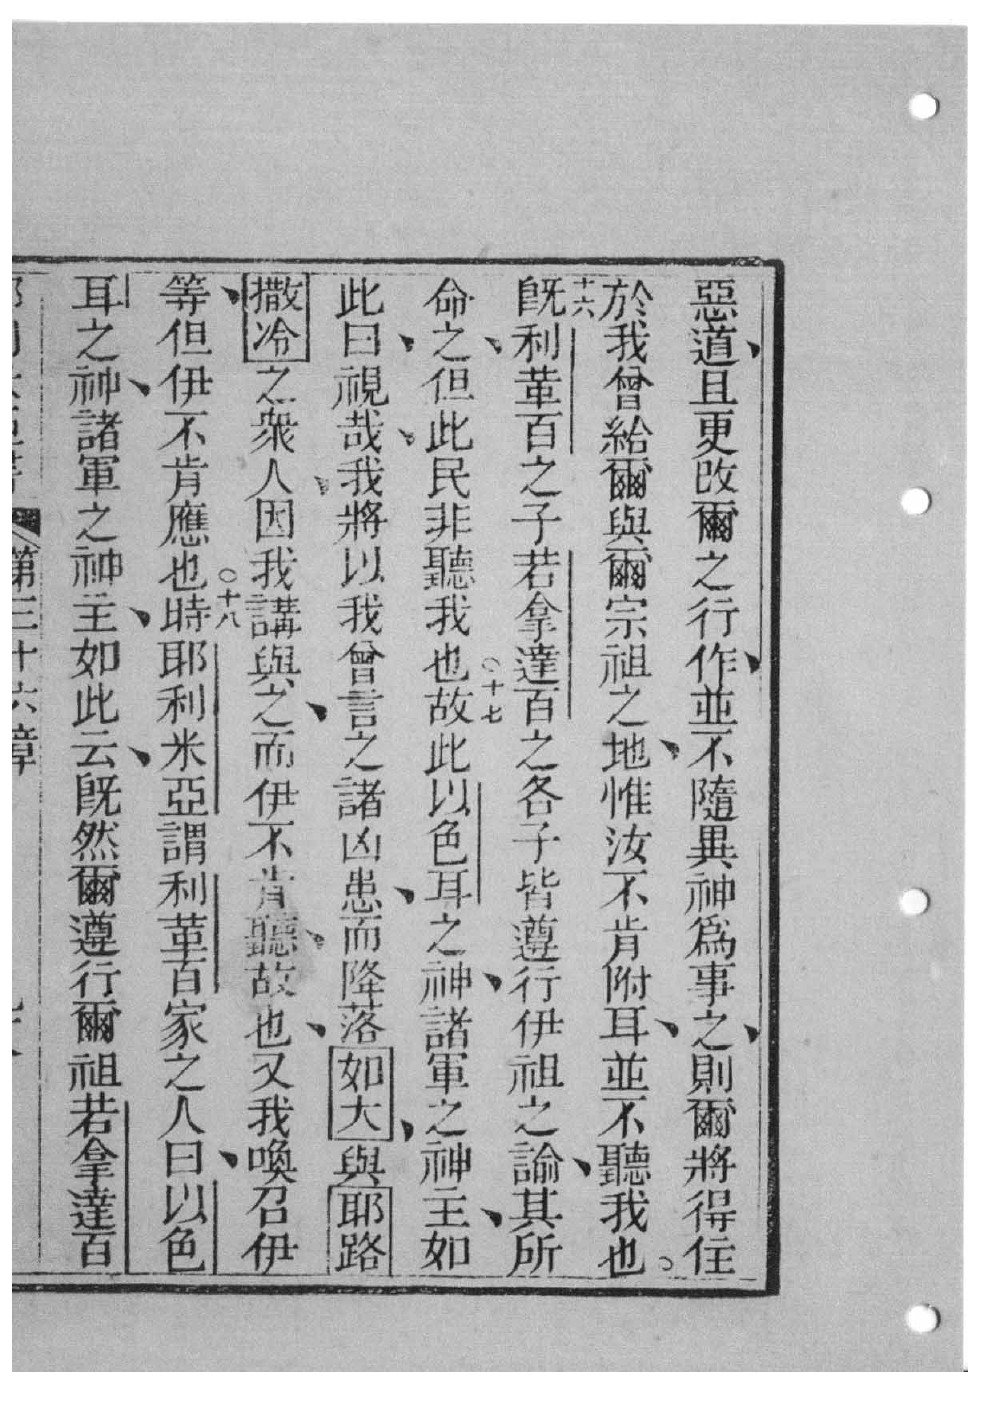 惡道、且更改爾之行作、並不隨異神爲事之、則爾將得住
於我曾給爾與爾宗祖之地、惟汝不肯附耳、並不聽我也。
十六既利革百之子若拿達百之各子皆遵行伊祖之諭、其所
命之、但此民非聽我也○十七故此以色耳之神、諸軍之神主、如
此曰、視哉、我將以我曾言之諸凶患、而降落如大、與耶路
撒冷之衆人、因我講與之、而伊不肯聽、故也、又我喚召伊
等、但伊不肯應也○十八時耶利米亞謂利革百家之人曰、以色
耳之神、諸軍之神主、如此云、既然爾遵行爾祖若拿達百
第三十六章